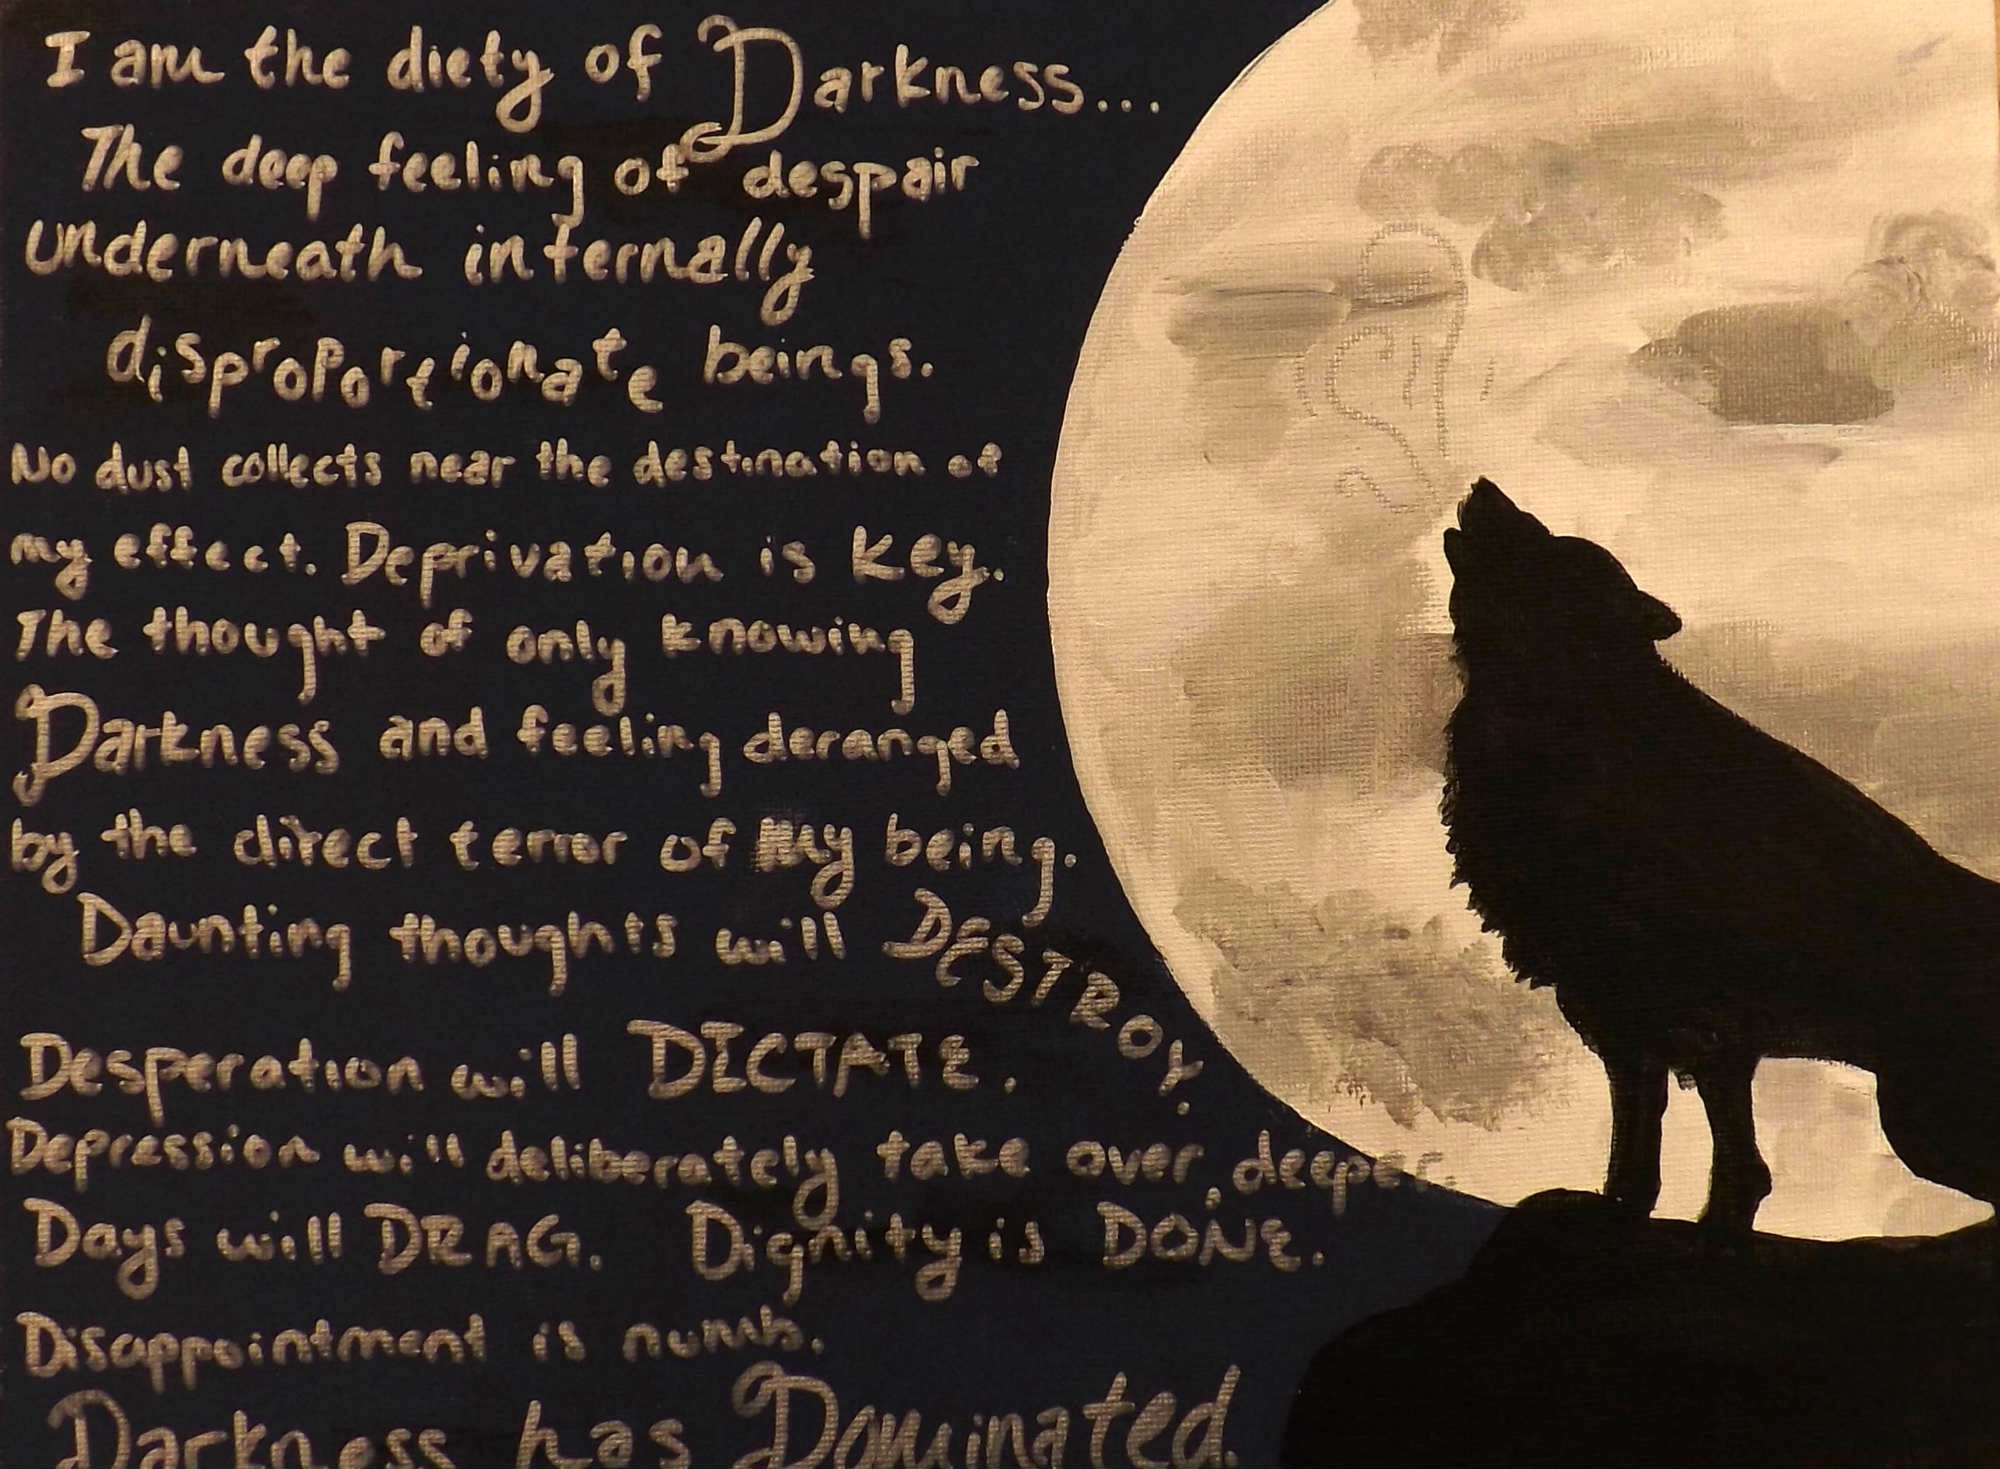 I am the diety of Darkness...
The deep feeling of despair
underneath internally
disproportionate beings.
No dust collects near the destination of
my effect. Deprivation is key.
The thought of only knowing
Darkness and feeling deranged
by the direct terror of my being.
Daunting thoughts will DESTROY.
Desperation will DICTATE.
Depression will deliberately take over, deeper.
Days will DRAG. Dignity is DONE.
Disappointment is numb.
Darkness has Dominated.